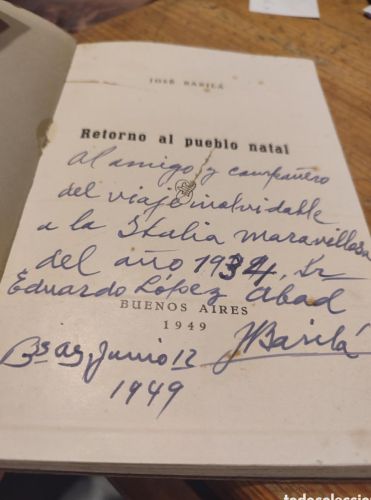 JOSÉ BARILÁ
Retorno al pueblo natal
Al amigo y compañero
del viaje inolvidable
a la Italia maravillosa
del año 1934, Sr
Eduardo López Abad
BUENOS AIRES
1949
JBarilá
Bs as, Junio 12
1949
todocoleccion